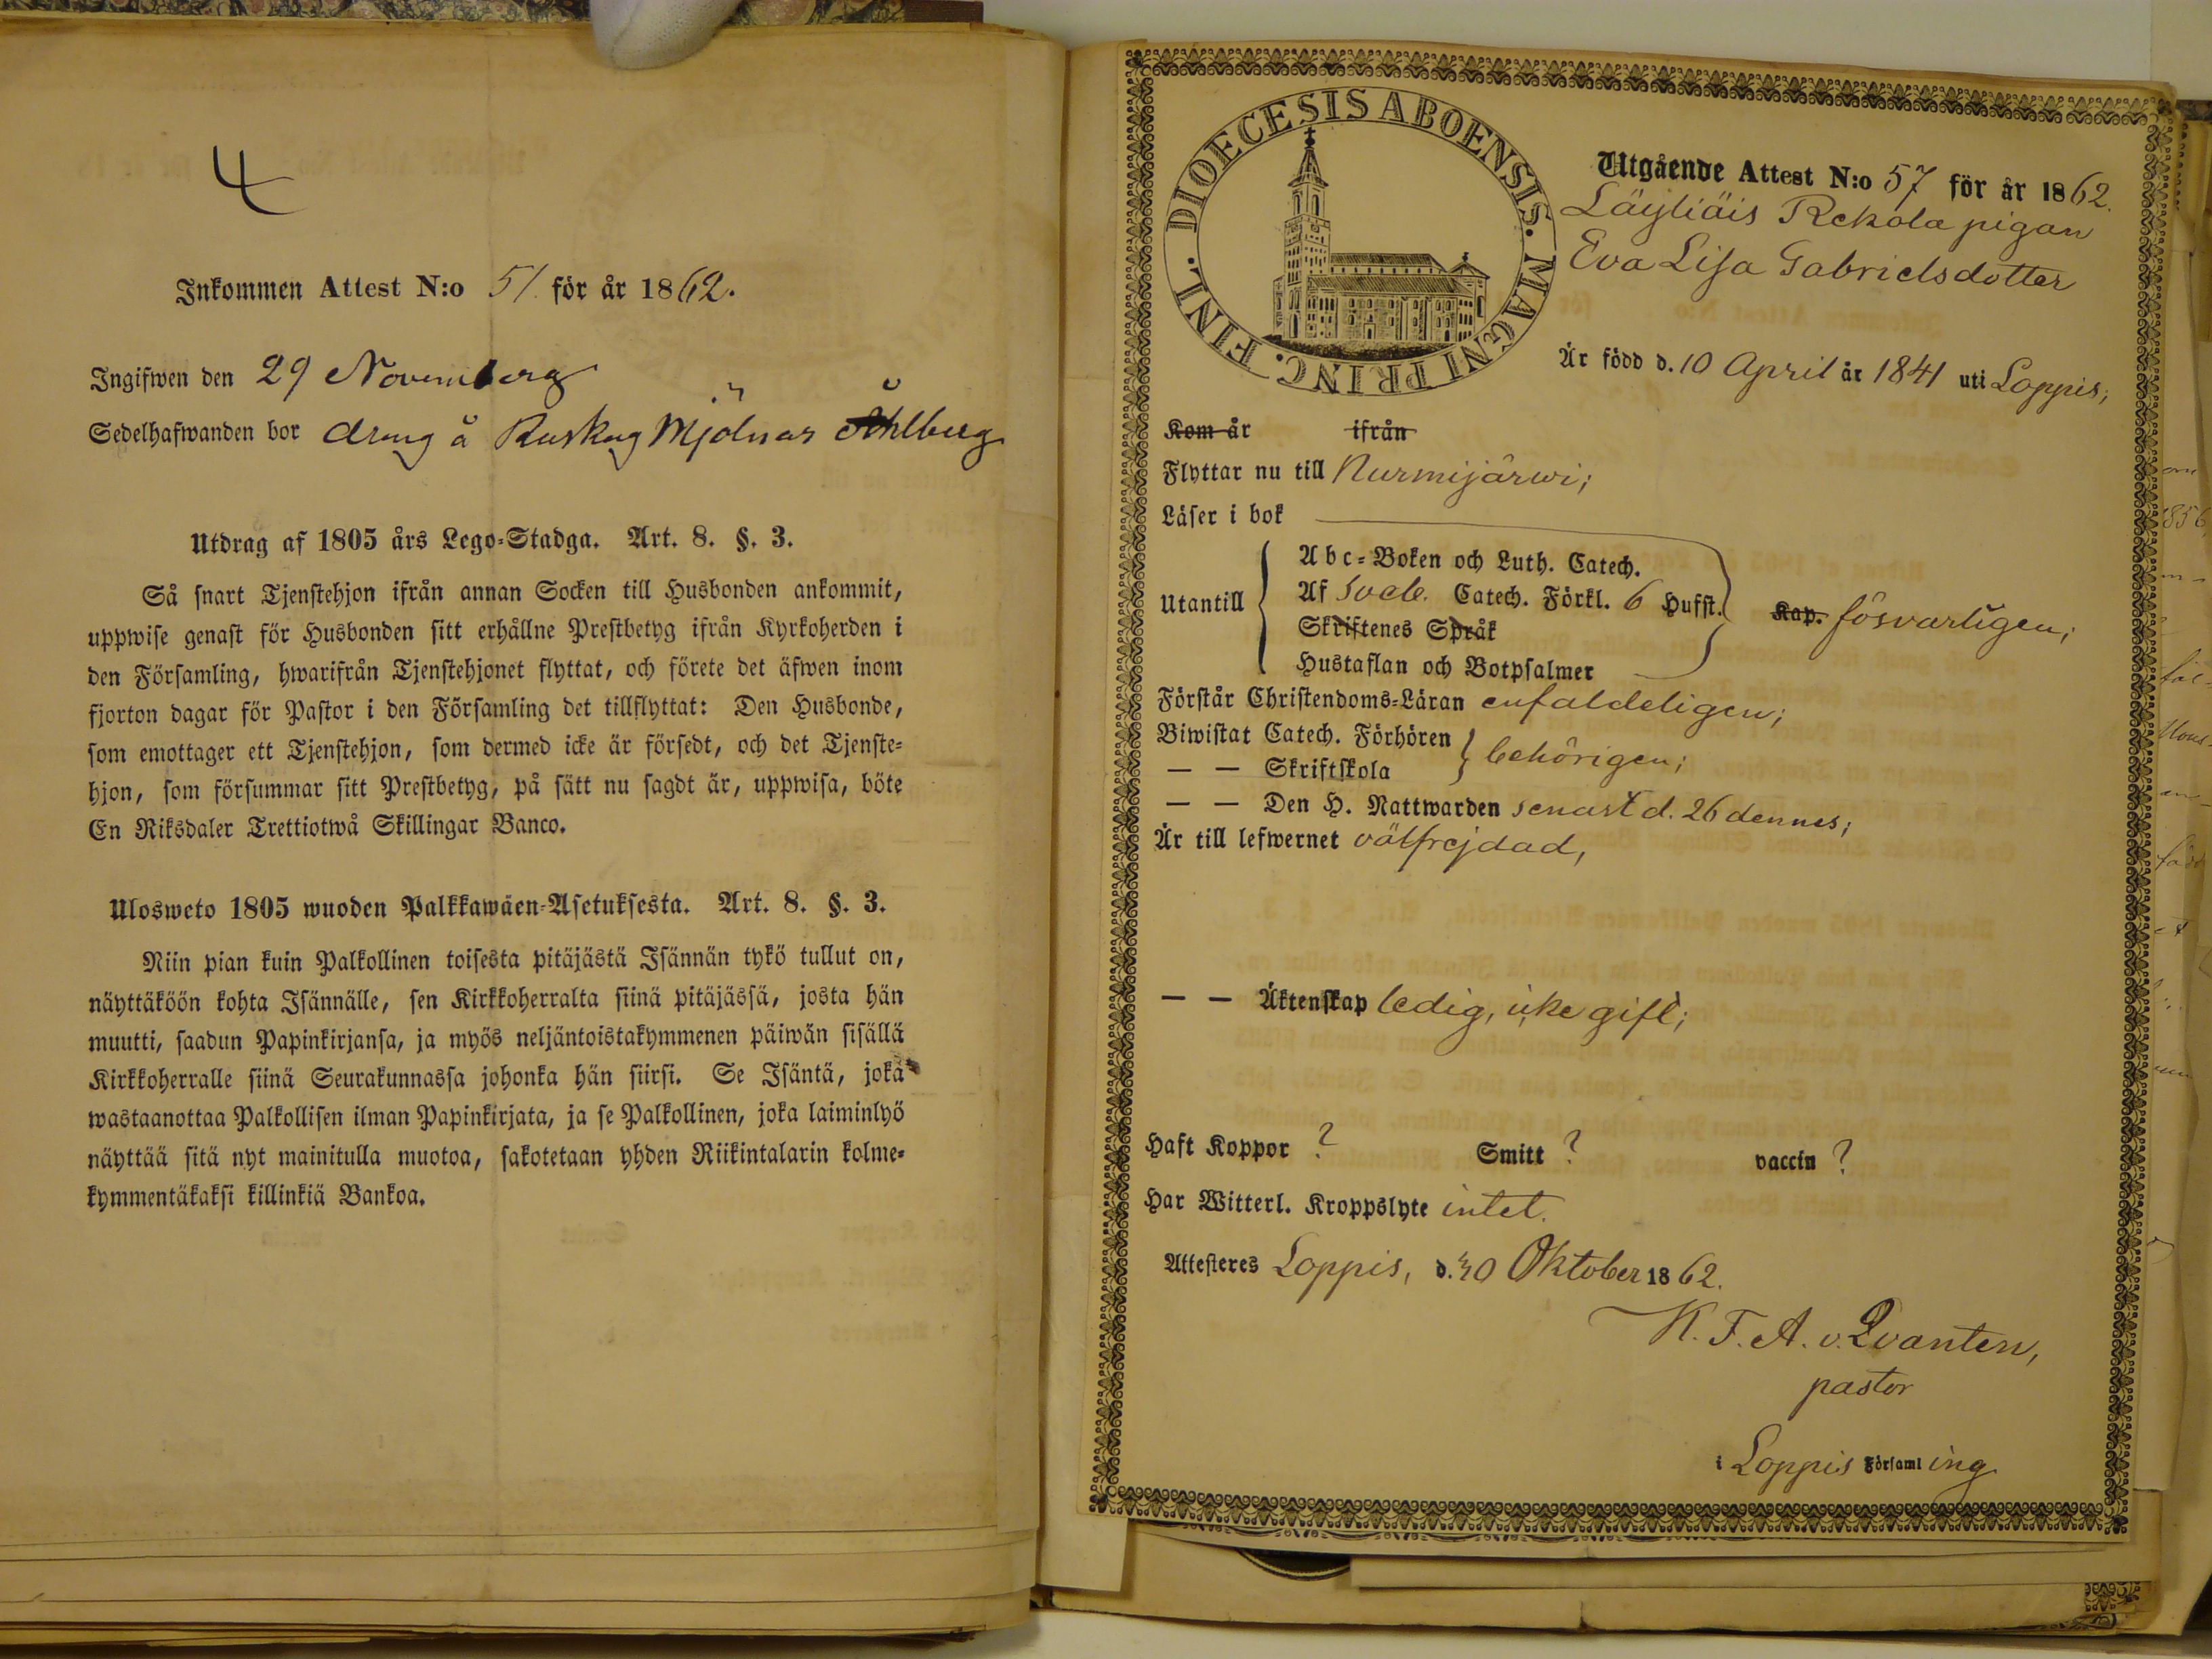 4
Inkommen Attest N:o 51. för år 1862.
Ingifwen den 29 November
Sedelhafwanden bor dreng å Mjölnar Åhlberg
Utdrag af 1805 års Lego-Stadga. Art. 8. §. 3.
Så snart Tjenstehjon ifrån annan Socken till Husbonden ankommit,
uppwise genast för Husbonden sitt erhållne Prestbetyg ifrån Kyrkoherden i
den Församling, hwarifrån Tjenstehjonet flyttat, och förete det äfwen inom
fjorton dagar för Pastor i den Församling det tillflyttat: Den Husbonde,
som emottager ett Tjenstehjon, som dermed icke är försedt, och det Tjenste-
hjon, som försummar sitt Prestbetyg, på sätt nu sagdt är, uppwisa, böte
En Riksdaler Trettiotwå Skillingar Banco.
Ulosweto 1805 wuoden Palkkawäen-Asetuksesta. Art. 8. §. 3.
Niin pian kuin Palkollinen toisesta pitäjästä Isännän tykö tullut on,
näyttäköön kohta Isännälle, sen Kirkkoherralta siinä pitäjässä, josta hän
muutti, saadun Papinkirjansa, ja myös neljäntoistakymmenen päiwän sisällä
Kirkkoherralle siinä Seurakunnassa johonka hän siirsi. Se Isäntä, joka
wastaanottaa Palkollisen ilman Papinkirjata, ja se Palkollinen, joka laiminlyö
näyttää sitä nyt mainitulla muotoa, sakotetaan yhden Riikintalarin kolme-
kymmentäkaksi killinkiä Bankoa.
DIOECESIS ABOENSIS. MAGNI PRINC. FINL.
Utgående Attest N:o 57 för år 1862.
Läyliäis Rekola pigan
Eva Lisa Gabrielsdotter
Är född d. 10 April år 1841 uti Loppis;
Kom år ifrån
Flyttar nu till Nurmijärwi;
Läser i bok
Abc-Boken och Luth. Catech.
Utantill Af Sveb. Catech. Förkl. 6 Hufst. Kap. försvarligen;
Skriftenes Språk
Hustaflan och Botpsalmer
Förstår Christendoms-Läran enfaldeligen;
Biwistat Catech. Förhören behörigen;
— — Skriftskola
— — Den H. Nattwarden senast d. 26 dennes;
Är till lefwernet välfrejdad,
— — Äktenskap ledig, icke gift;
Haft Koppor ? Smitt ? vaccin ?
Har Witterl. Kroppslyte intet.
Attesteres Loppis, d. 30 Oktober 1862.
K. F. A. v. Qvanten,
pastor
i Loppis Församling